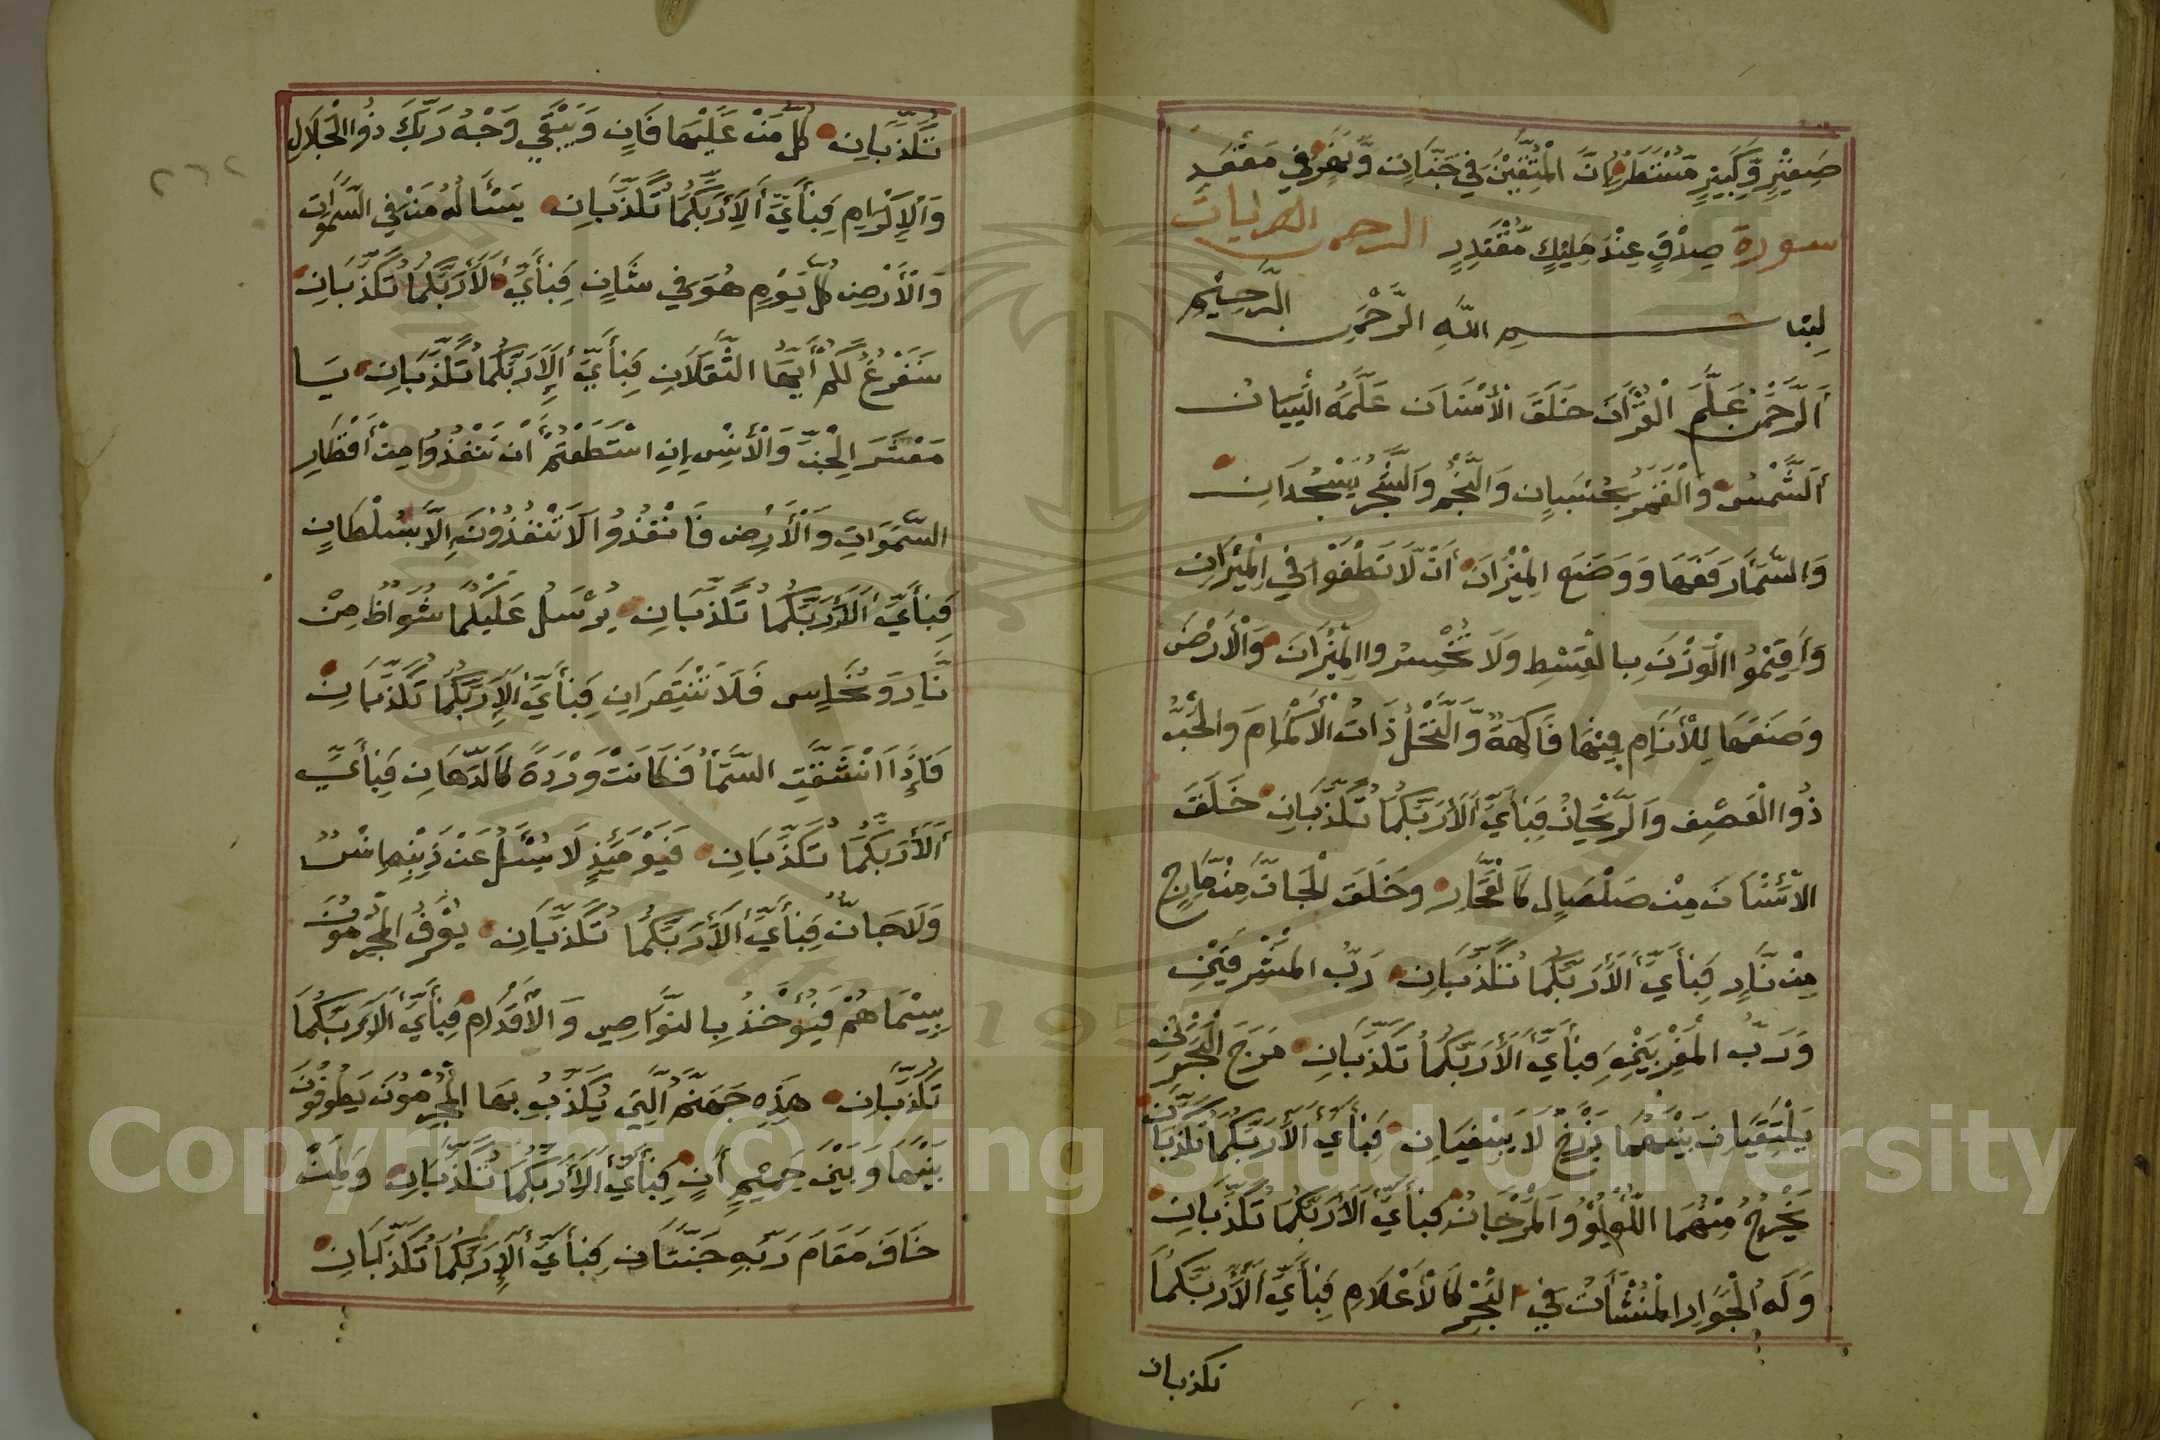 صَغِيْرٍ وَّكَبِيْرٍ مُّسْتَطَرٌ اِنَّ الْمُتَّقِيْنَ فِي جَنَّاتٍ وَّنَهَرٍ فِي مَقْعَدِ
سورة صِدْقٍ عِنْدَ مَلِيْكٍ مُّقْتَدِرٍ الرحمن
بِسْمِ اللَّهِ الرَّحْمٰنِ الرَّحِيْمِ
اَلرَّحْمٰنُ عَلَّمَ الْقُرْاٰنَ خَلَقَ الْأِنْسَانَ عَلَّمَهُ الْبَيَانَ
اَلشَّمْسُ وَالْقَمَرُ بِحُسْبَانٍ وَالنَّجْمُ وَالشَّجَرُ يَسْجُدَانِ
وَالسَّمَاءَ رَفَعَهَا وَوَضَعَ الْمِيْزَانَ أَنْ لَّا تَطْغَوْا فِي الْمِيْزَانِ
وَأَقِيْمُوا الْوَزْنَ بِالْقِسْطِ وَلَا تُخْسِرُوا الْمِيْزَانَ وَالْأَرْضَ
وَضَعَهَا لِلْأَنَامِ فِيْهَا فَاكِهَةٌ وَّالنَّخْلُ ذَاتُ الْأَكْمَامِ وَالْحَبُّ
ذُوا الْعَصْفِ وَالرَّيْحَانُ فَبِأَيِّ اَلَاءِ رَبِّكُمَا تُكَذِّبَانِ خَلَقَ
الْأِنْسَانَ مِنْ صَلْصَالٍ كَالْفَخَّارِ وَخَلَقَ الْجَانَّ مِنْ مَّارِجٍ
مِنْ نَّارٍ فَبِأَيِّ اَلَاءِ رَبِّكُمَا تُكَذِّبَانِ رَبُّ الْمَشْرِقَيْنِ
وَرَبُّ الْمَغْرِبَيْنِ فَبِأَيِّ اَلَاءِ رَبِّكُمَا تُكَذِّبَانِ مَرَجَ الْبَحْرَيْنِ
يَلْتَقِيَانِ بَيْنَهُمَا بَرْزَخٌ لَا يَبْغِيَانِ فَبِأَيِّ اَلَاءِ رَبِّكُمَا تُكَذِّبَانِ
يَخْرُجُ مِنْهُمَا اللُّؤْلُؤُ وَالْمَرْجَانُ فَبِأَيِّ اَلَاءِ رَبِّكُمَا تُكَذِّبَانِ
وَلَهُ الْجَوَارِ الْمُنْشَأٰتُ فِي الْبَحْرِ كَالْأَعْلَامِ فَبِأَيِّ اَلَاءِ رَبِّكُمَا
تكذبان
تُكَذِّبَانِ كُلُّ مَنْ عَلَيْهَا فَانٍ وَيَبْقَي وَجْهُ رَبِّكَ ذُوا الْجَلَالِ
وَالْإِكْرَامِ فَبِأَيِّ اَلَاءِ رَبِّكُمَا تُكَذِّبَانِ يَسْأَلُهُ مَنْ فِي السَّمٰوَاتِ
وَالْأَرْضِ كُلَّ يَوْمٍ هُوَ فِي شَانٍ فَبِأَيِّ اَلَاءِ رَبِّكُمَا تُكَذِّبَانِ
سَنَفْرُغُ لَكُمْ أَيُّهَا الثَّقَلَانِ فَبِأَيِّ اَلَاءِ رَبِّكُمَا تُكَذِّبَانِ يَا
مَعْشَرَ الْجِنِّ وَالْأِنْسِ إِنِ اسْتَطَعْتُمْ أَنْ تَنْفُذُوا مِنْ أَقْطَارِ
السَّمٰوَاتِ وَالْأَرْضِ فَانْفُذُوا لَا تَنْفُذُوْنَ إِلَّا بِسُلْطَانٍ
فَبِأَيِّ اَلَاءِ رَبِّكُمَا تُكَذِّبَانِ يُرْسَلُ عَلَيْكُمَا شُوَاظٌ مِنْ
نَّارٍ وَنُحَاسٍ فَلَا تَنْتَصِرَانِ فَبِأَيِّ اَلَاءِ رَبِّكُمَا تُكَذِّبَانِ
فَإِذَا انْشَقَّتِ السَّمَاءُ فَكَانَتْ وَرْدَةً كَالدِّهَانِ فَبِأَيِّ
اَلَاءِ رَبِّكُمَا تُكَذِّبَانِ فَيَوْمَئِذٍ لَا يُسْئَلُ عَنْ ذَنْبِهِ اِنْسٌ
وَلَا جَانٌّ فَبِأَيِّ اَلَاءِ رَبِّكُمَا تُكَذِّبَانِ يُعْرَفُ الْمُجْرِمُوْنَ
بِسِيْمَاهُمْ فَيُؤْخَذُ بِالنَّوَاصِي وَالْأَقْدَامِ فَبِأَيِّ اَلَاءِ رَبِّكُمَا
تُكَذِّبَانِ هٰذِهِ جَهَنَّمُ الَّتِي يُكَذِّبُ بِهَا الْمُجْرِمُوْنَ يَطُوْفُوْنَ
بَيْنَهَا وَبَيْنَ حَمِيْمٍ اٰنٍ فَبِأَيِّ اَلَاءِ رَبِّكُمَا تُكَذِّبَانِ وَلِمَنْ
خَافَ مَقَامَ رَبِّهِ جَنَّتَانِ فَبِأَيِّ اَلَاءِ رَبِّكُمَا تُكَذِّبَانِ
Copyright © King Saud University
1957